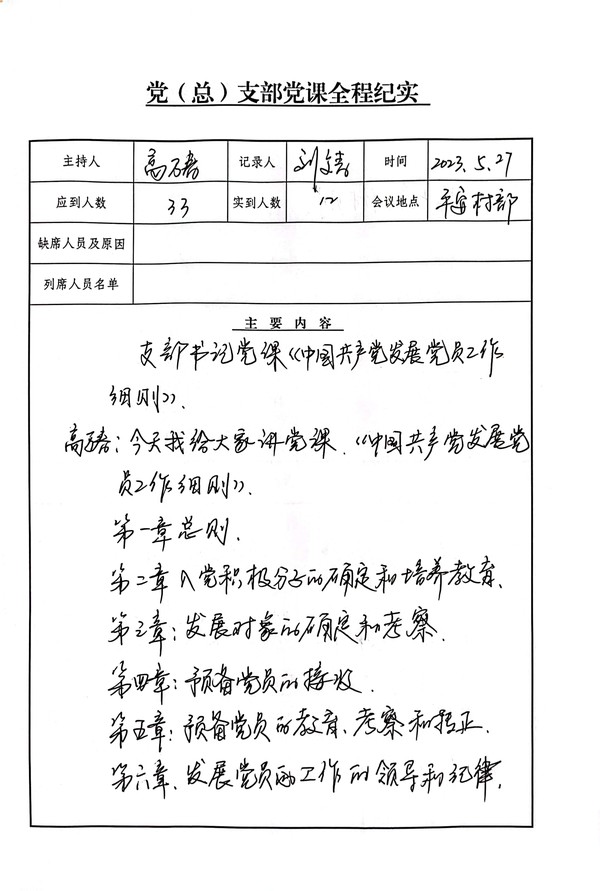 党（总）支部党课全程纪实
主持人 高 记录人 刘 时间 2023.5.27
应到人数 33 实到人数 12 会议地点 平安村部
缺席人员及原因
列席人员名单
主要内容
支部书记党课《中国共产党发展党员工作
细则》.
高：今天我给大家讲党课.《中国共产党发展党
员工作细则》.
第一章总则.
第二章入党积极分子的确定和培养教育.
第三章：发展对象的确定和考察.
第四章：预备党员的接收.
第五章：预备党员的教育、考察和转正.
第六章、发展党员工作的领导和纪律.